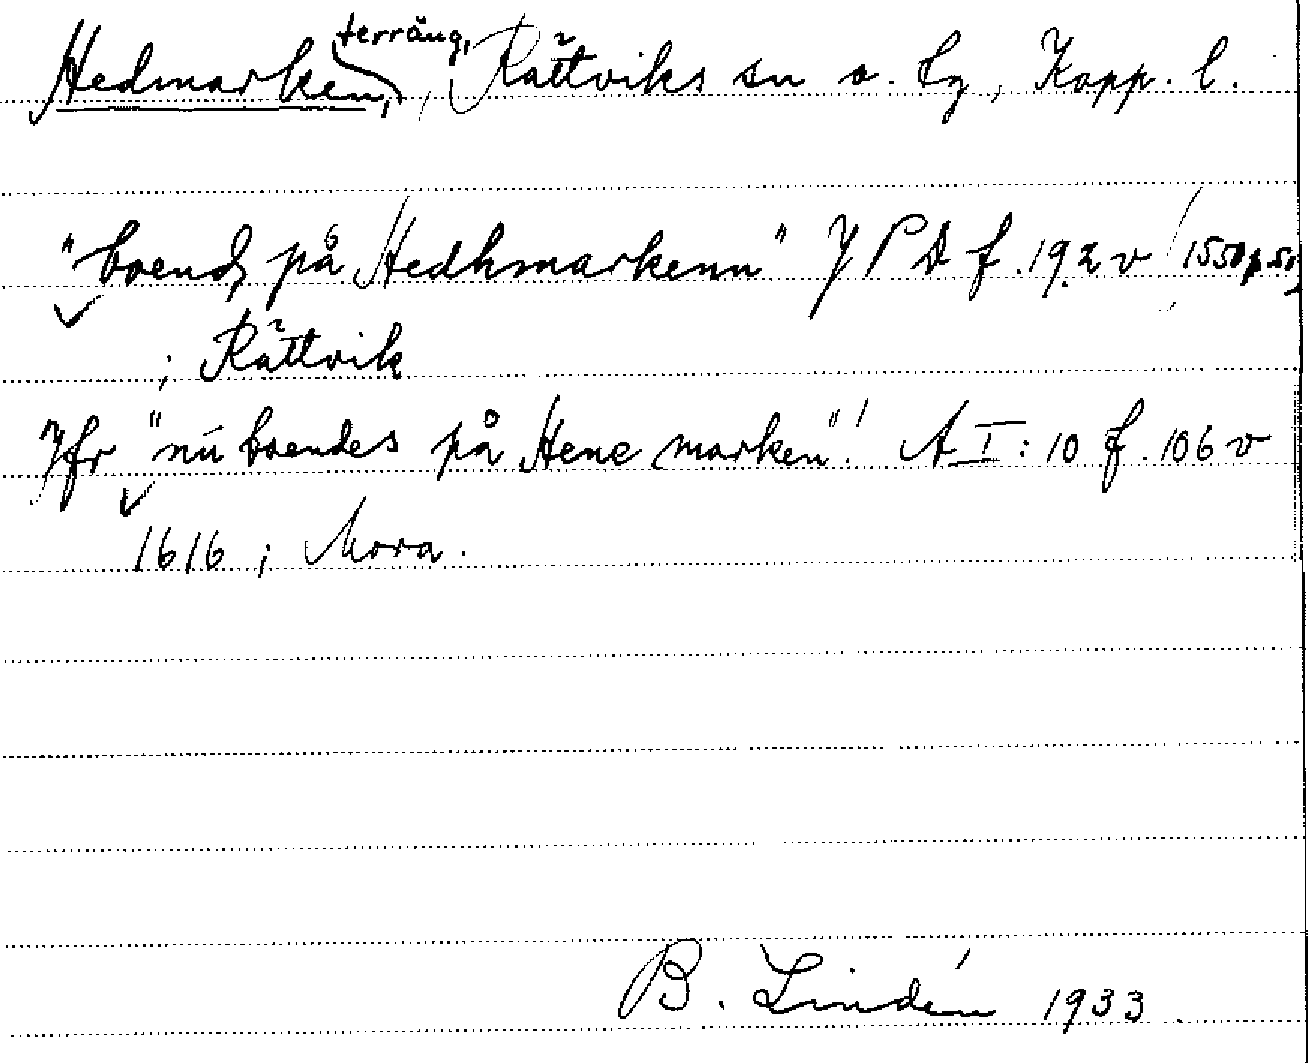 Hedmarken, terräng, Rättviks sn o. by, Kopp. l.
"boendȝ på Hedhmarkenn" JPD f. 192 v
; Rättvik
Jfr "nú boendes på Hene marken"! A I: 10 f. 106 v
1616; Mora.
B. Lindén 1933